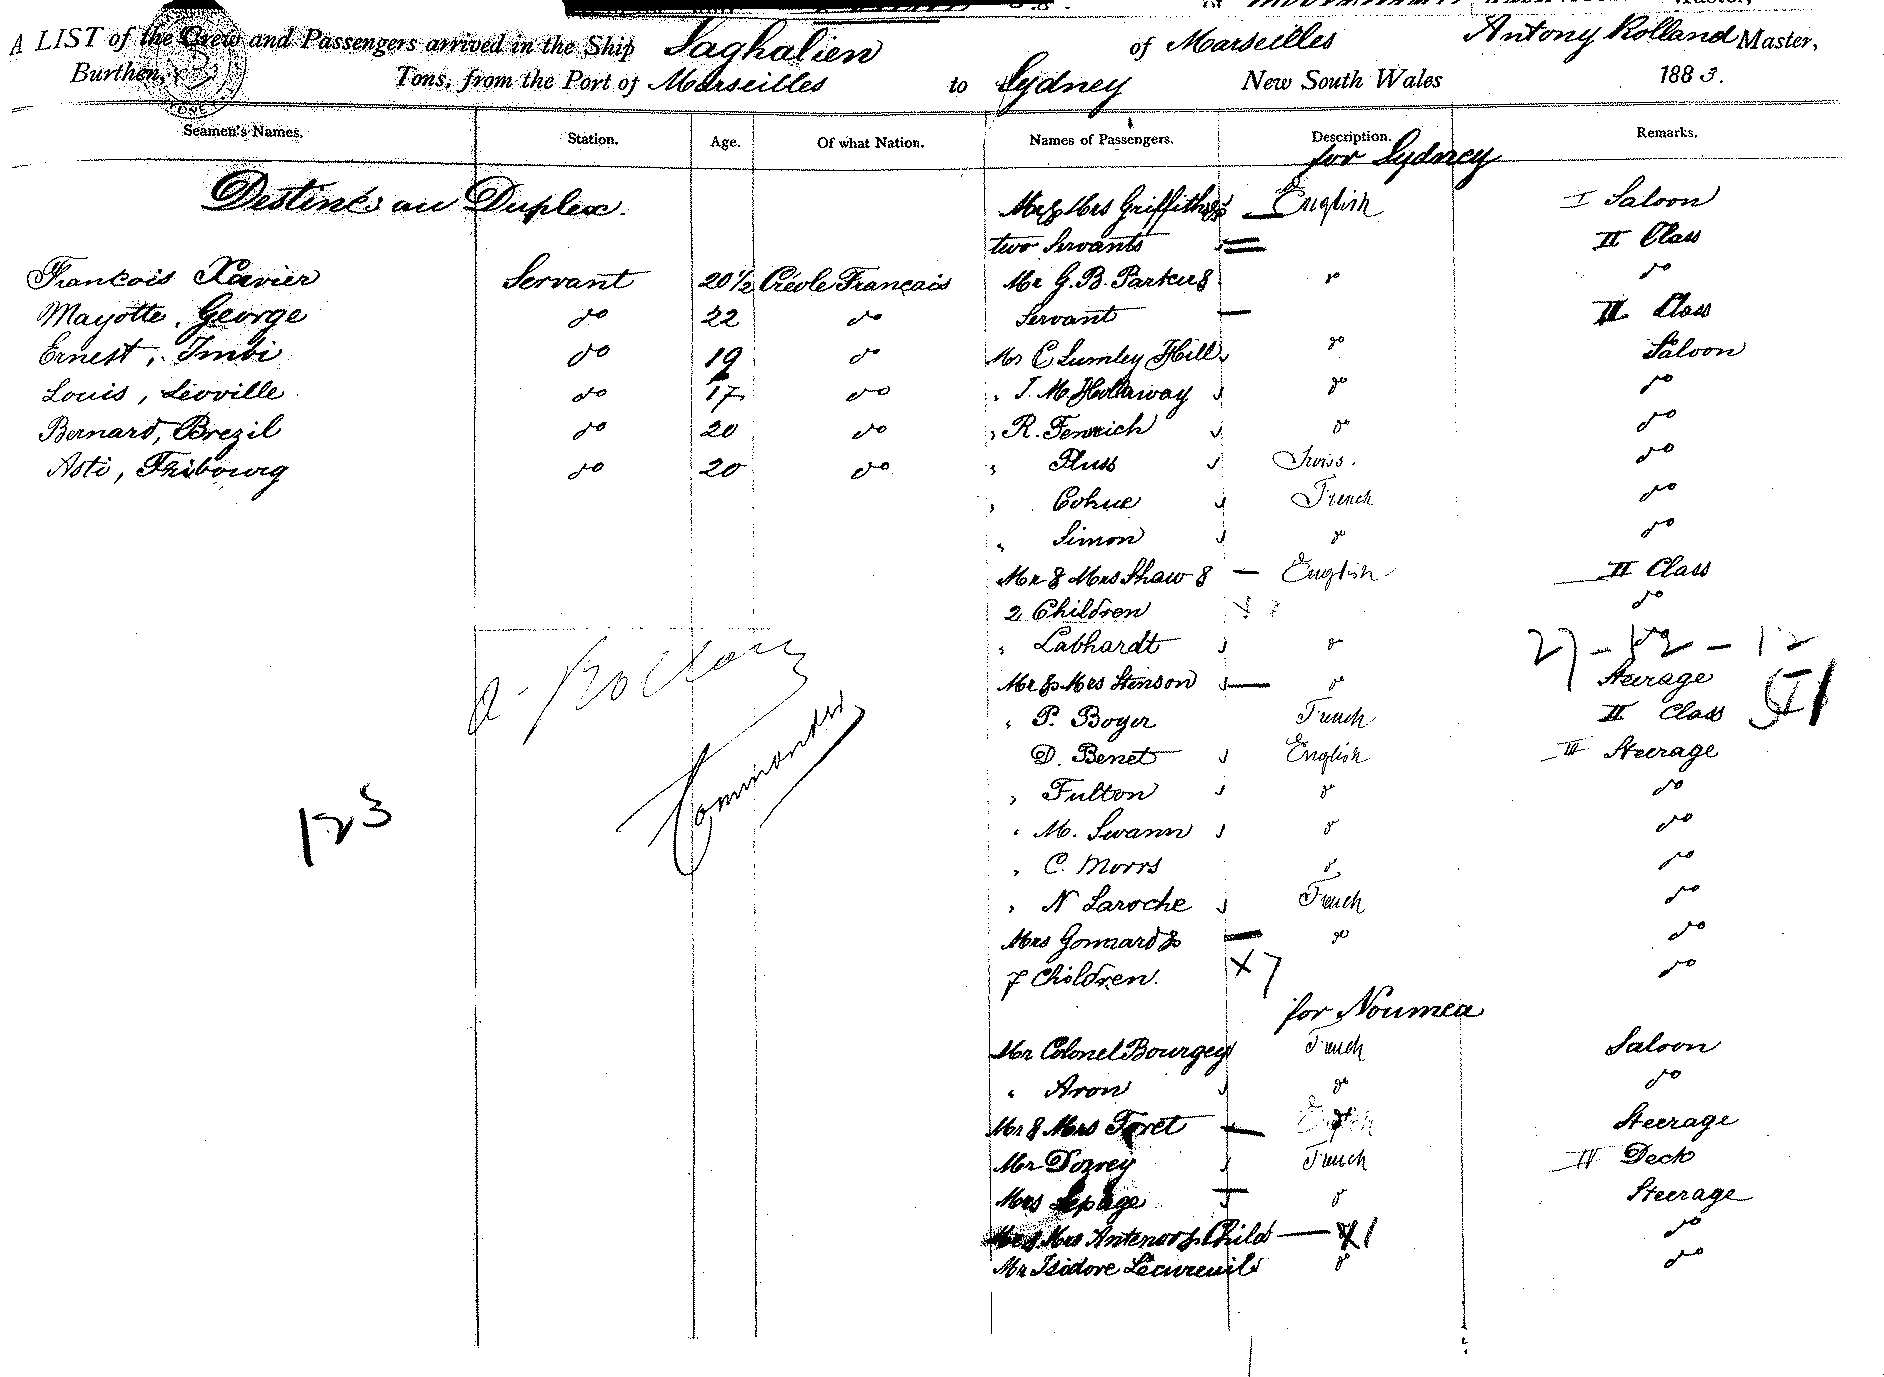 A LIST of the Crew and Passengers arrived in the Ship Saghalien of Marseilles Antony Rolland Master,
Burthen, Tons, from the Port of Marseilles to Sydney New South Wales 1883.
Seamen's Names. Station. Age. Of what Nation. Names of Passengers. Description. Remarks.
for Sydney
Destinés au Duplex.
Mr & Mrs Griffiths & English I Saloon
two Servants II Class
François Xavier Servant 20½ Créole Français Mr G.B. Parker & do do
Mayotte, George do 22 do Servant III Class
Ernest, Imbi do 19 do Mr C Lumley Hill do Saloon
Louis, Léoville do 17 do " J. M. Hollaway do do
Bernard, Brezil do 20 do " R. Fenwich do do
Asti, Fribourg do 20 do " Fluss Swiss. do
" Cohue French do
" Simon do do
Mr & Mrs Shaw & English II Class
2 Children do
" Labhardt do
27 - 12 - 12
Mr & Mrs Stenson do Steerage
" P. Boyer French II Class
D. Benet English III Steerage
" Fulton do do
" M. Swann do do
" C. Morrs do do
" N Laroche French do
Mrs Gonnard & do do
7 Children. X 7 do
A. Rolland
Commander
123
for Noumea
Mr Colonel Bourgey French Saloon
" Aron do do
Mr & Mrs Foret do Steerage
Mr Dozrey French IV Deck
Mrs Lepage do Steerage
Mr & Mrs Antenor & Child X1 do
Mr Isidore Lecureuil do do